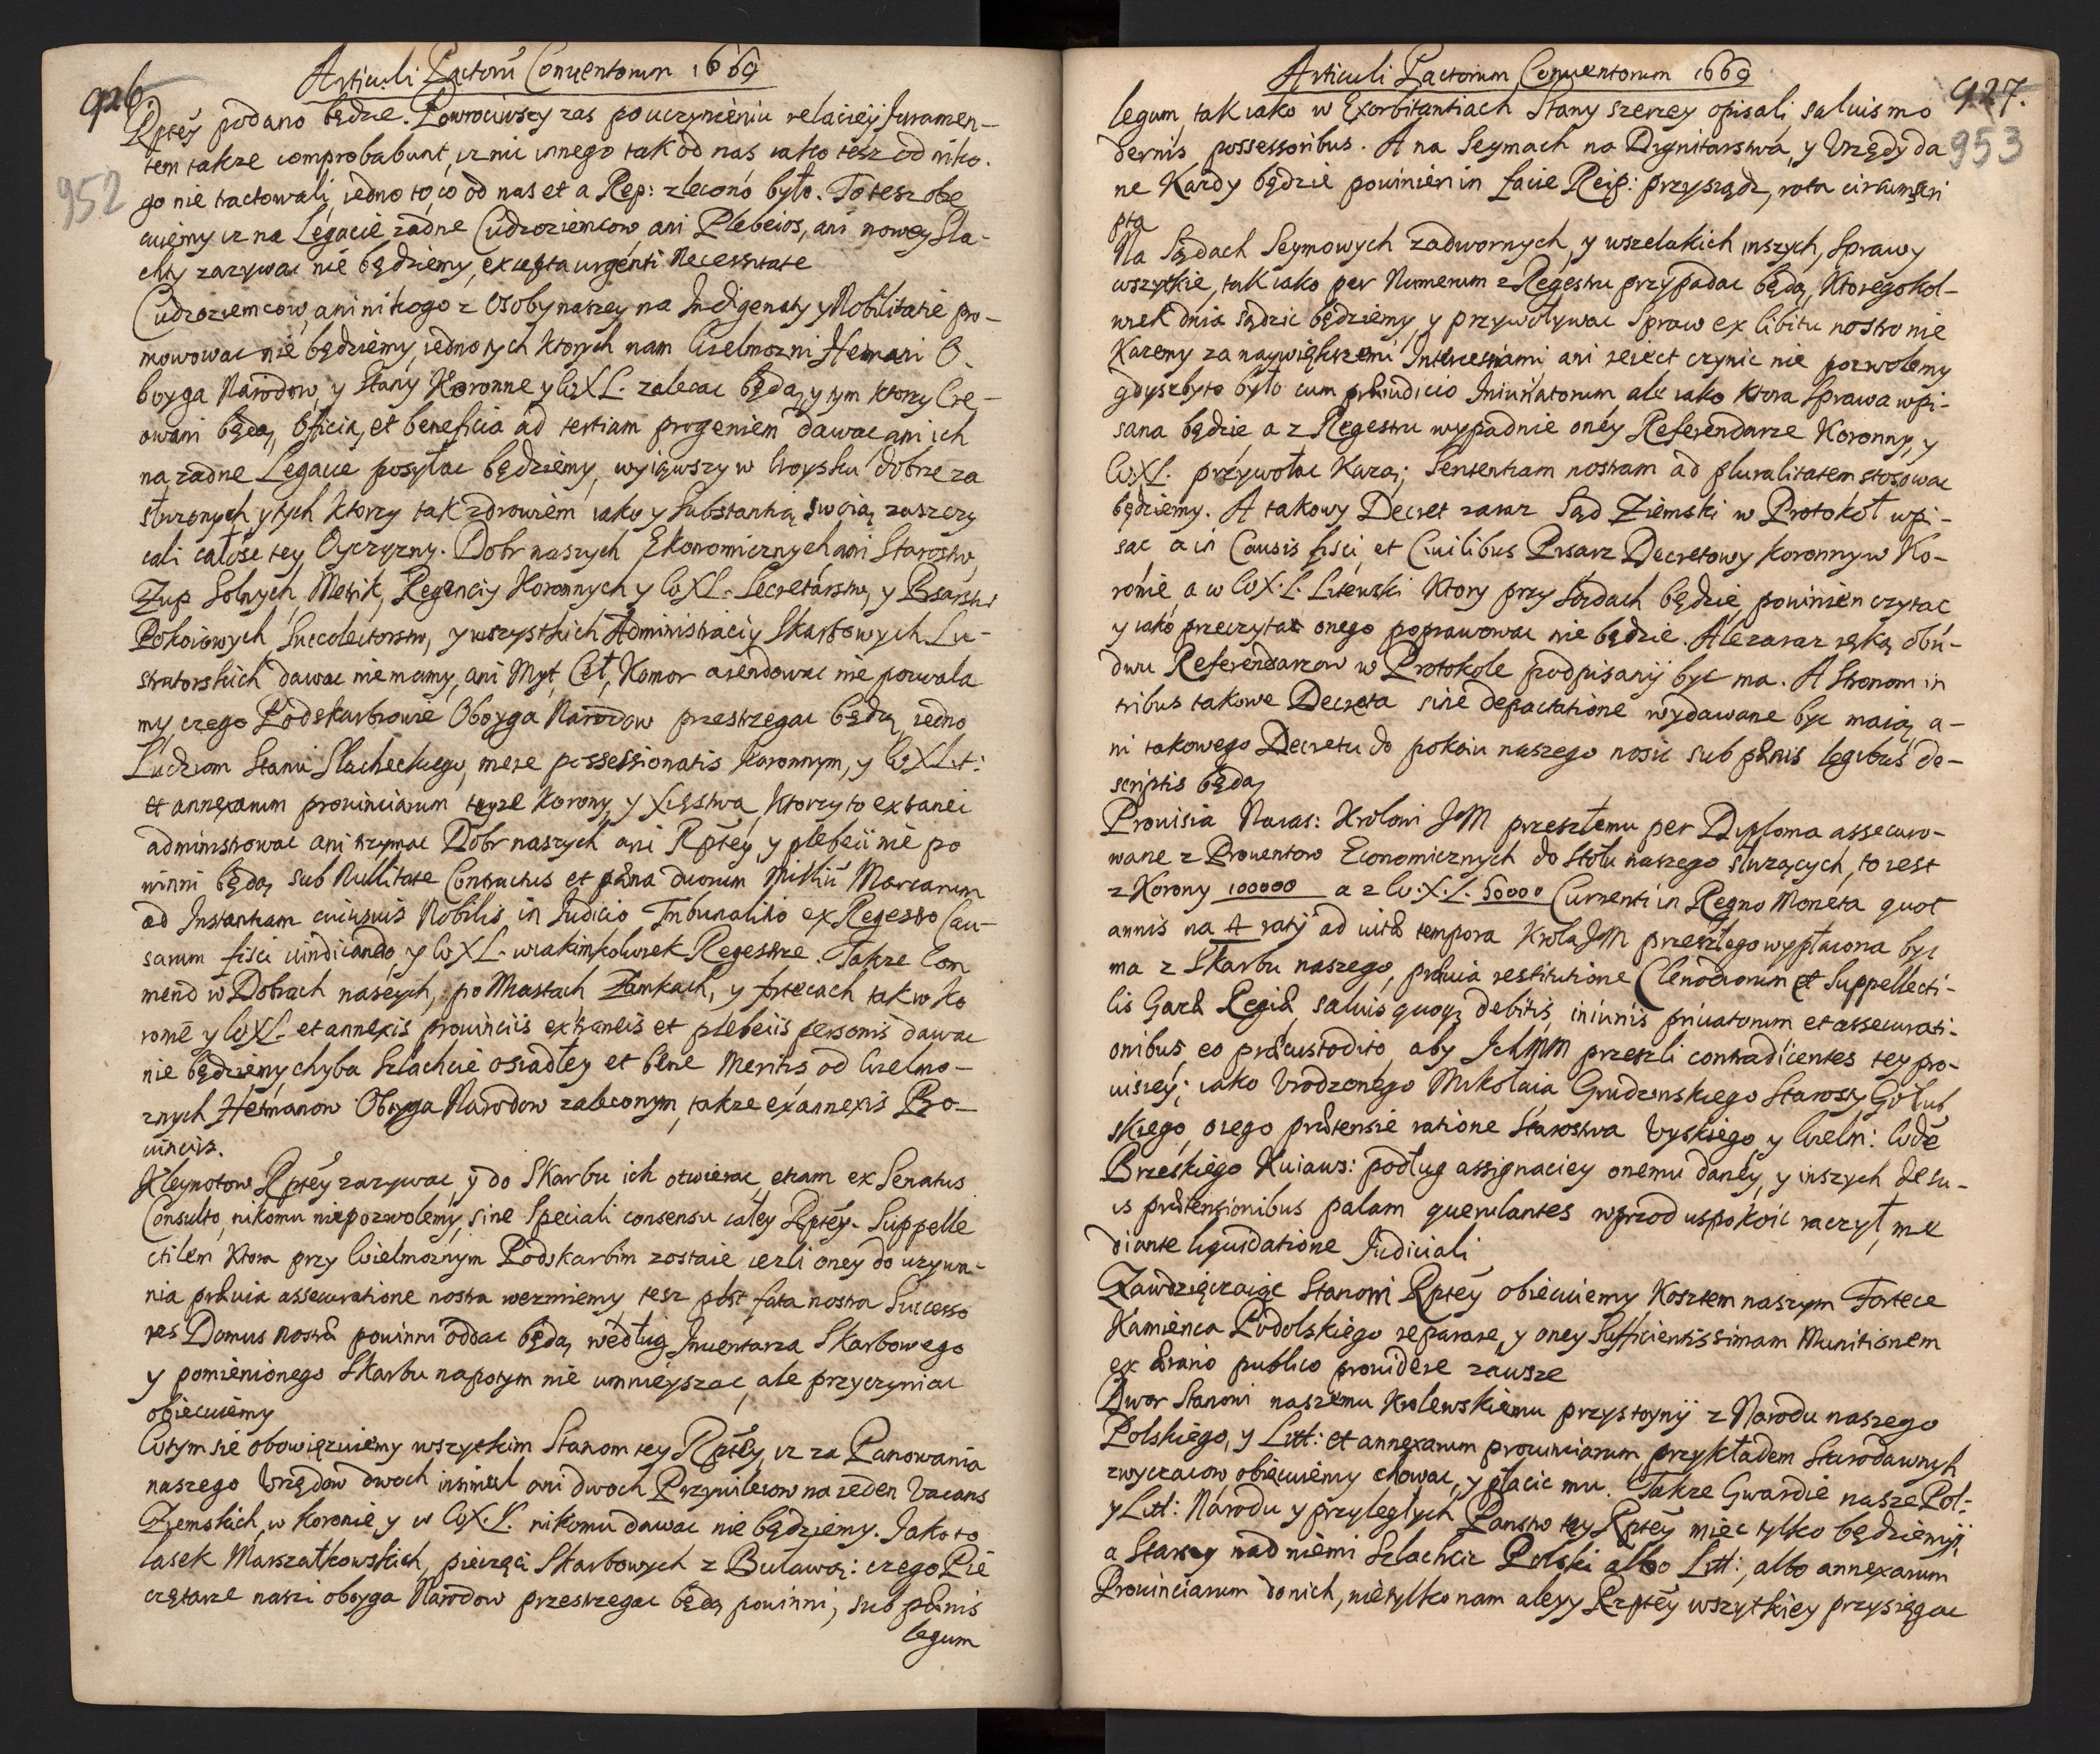 926
952
Articuli Pactorũ Conuentorum 1669
Rptey podano będzie. Powrociwszy zas po uczynieniu relaciey Juramen-
tem takze comprobabunt, iz nic innego tak od nas iako tesz od niko.
go nie tractowali, iedno to, co od nas et a Rep: zlecono było. To tesz obie
cuiemy iz na Legacie zadne Cudzoziemcow ani Plebeios, ani nowey Sla-
chty zazywac nie będziemy, excepta urgenti Necessitate
Cudzoziemcow, ani nikogo z Osoby naszey na Indigenaty y Nobilitatie pro-
mowowac nie będziemy, iedno tych ktorych nam Wielmozni Hetmani O-
boyga Narodow, y Stany Koronne y WXL. zalecac będą, y tym ktorzy Cre-
owani będą, Officia, et beneficia ad tertiam progeniem dawac ani ich
na zadne Legacie posyłac będziemy, wyiąwszy w Woysku dobrze za
słuzonych, y tych ktorzy tak zdrowiem iako y Substantią swoią zaszczy
cali całosc tey Oyczyzny. Dobr naszych Ekonomicznych, ani Starostw,
Zup Solnych, Metrik, Regenciy Koronnych y WXL. Secretarstw, y Pisarstw
Pokoiowych, Succolectorstw, y wszystkich Administraciy Skarbowych Lu-
stratorskich dawac nie mamy, ani Myt, Ceł, Komor arendowac nie pozwala
my, czego Podskarbiowie Oboyga Narodow przestrzegac będą, iedno
Ludziom Stanu Slacheckiego, mere possessionatis Koronnym, y WXLit:
et annexarum prouinciarum teyze Korony, y Xięstwa, Ktorzy to extranei
administrowac ani trzymac Dobr naszych ani Rptey, y plebeii nie po
winni będą, sub Nullitate Contractus et pæna duorum Milliũ Marcarum
ad Instantiam cuiusuis Nobilis in Judicio Tribunalitio ex Regestro Cau-
sarum fisci uindicando, y WXL. w iakimkolwiek Regestrze. Takze Com
mend w Dobrach naszych, po Miastach Zamkach, y fortecach tak w Ko
ronie y WXL. et annexis prouinciis extraneis et plebeiis personis dawac
nie będziemy, chyba Szlachcie osiadłey et bene Meritis od Wielmo-
znych Hetmanow Oboyga Narodow zaleconym, takze ex annexis Pro-
uinciis.
Kleynotow Rptey zazywac, y do Skarbu ich otwierac, etiam ex Senatus
Consulto, nikomu nie pozwolemy, sine Speciali consensu całey Rptey. Suppelle
ctilem ktora przy Wielmoznym Podskarbim zostaie iezli oney do uzywa-
nia præuia assecuratione nostra wezmiemy, tesz post fata nostra Successo
res Domus nostræ powinni oddac będą, według Inuentarza Skarbowego
y pomienionego Skarbu napotym nie umnieyszac, ale przyczyniac
obiecuiemy
W tym sie obowięzuiemy wszytkim Stanom tey Rptey, iz za Panowania
naszego Urzędow dwoch insimul ani dwoch Przywileiow na ieden Vacans
Ziemskich w Koronie y w WX.L. nikomu dawac nie będziemy. Jako to
lasek Marszałkowskich, pieczęci Skarbowych z Buławą: czego Pie
czętarze naszi oboyga Narodow przestrzegac będą powinni, sub pænis
legum
Articuli Pactorum Conuentorum 1669
927.
953
legum, tak iako w Exorbitantiach Stany szerzey opisali, saluis mo
dernis possessoribus. A na Seymach na Dignitarstwa, y Urzędy da
ne Kazdy będzie powinien in facie Reip: przysządz, rota circumscri
pta
Na Sądach Seymowych zadwornych, y wszelakich inszych, Sprawy
wszytkie, tak iako per Numerum z Regestru przypadac będą, Ktoregokol-
wiek dnia sądzic będziemy, y przywoływac Spraw ex libitu nostro nie
Kazemy za naywiększemi Intercessiami, ani reiect czynic nie pozwolemy
gdyszbyto było cum præiudicio Iniuriatorum, ale iako ktora Sprawa wpi-
sana będzie a z Regestru wypadnie oney Referendarze Koronny, y
WXL. przywołac Kazą; Sententiam nostram ad pluralitatem stosowac
będziemy. A takowy Decret zaraz Sąd Ziemski w Protokoł wpi-
sac a in Causis fisci, et Ciuilibus Pisarz Decretowy Koronny w Ko-
ronie, a w WX.L. Litewski Ktory przy Sądach będzie, powinien czytac
y iako przeczyta onego poprawowac nie będzie. Ale zaraz ręką obu-
dwu Referendarzow w Protokole podpisanij byc ma. A Stronom in
tribus takowe Decreta sine depactatione wydawane byc maią, a-
ni takowego Decretu do pokoiu naszego nosic sub pænis legibus de-
scriptis będą
Prouisia Naias: Krolowi JM przeszłemu per Diploma assecuro-
wane z Prouentow Economicznych do stołu naszego słuzących, to iest
z Korony 100000 a z W.X.L. 50000 Currenti in Regno Moneta quot
annis na 4 ratij ad uitæ tempora Krola JM przeszłego wypłacona byc
ma z Skarbu naszego, præuia restitutione Clenodiorum et Suppellecti-
lis Garæ Regiæ, saluis quoqꝫ debitis, iniuriis priuatorum et assecurati-
onibus, eo præcustodito, aby IchMM przeszli contradicentes tey pro-
uisiey; iako Urodzonego Mikołaia Grudzinskiego Starosty Gołub
skiego, oiego prætensie ratione Starostwa Uyskiego y Wielm: Wdę
Brzeskiego Kuiaws: podług assignaciey onemu daney, y inszych de su-
is prætensionibus palam querulantes wprzod uspokoic raczył, me
diante liquidatione Judiciali
Zawdzięczaiąc Stanowi Rptey obiecuiemy Kosztem naszym Fortece
Kamienca Podolskiego reparare, y oney Sufficientissimam Munitionem
ex ærario publico prouidere zawsze
Dwor Stanowi naszemu Krolewskiemu przystoynij z Narodu naszego
Polskiego, y Litt: et annexarum prouinciarum, przykładem Starodawnych
zwyczaiow, obiecuiemy chowac, y płacic mu. Takze Gwardie nasze Pol-
y Litt: Narodu y przyległych Panstw tey Rptey miec tylko będziemij,
a Starszy nad niemi Szlachcic Polski albo Litt:, albo annexarum
Prouinciarum do nich, nietylko nam ale y Rzptey wszytkiey przysięgac